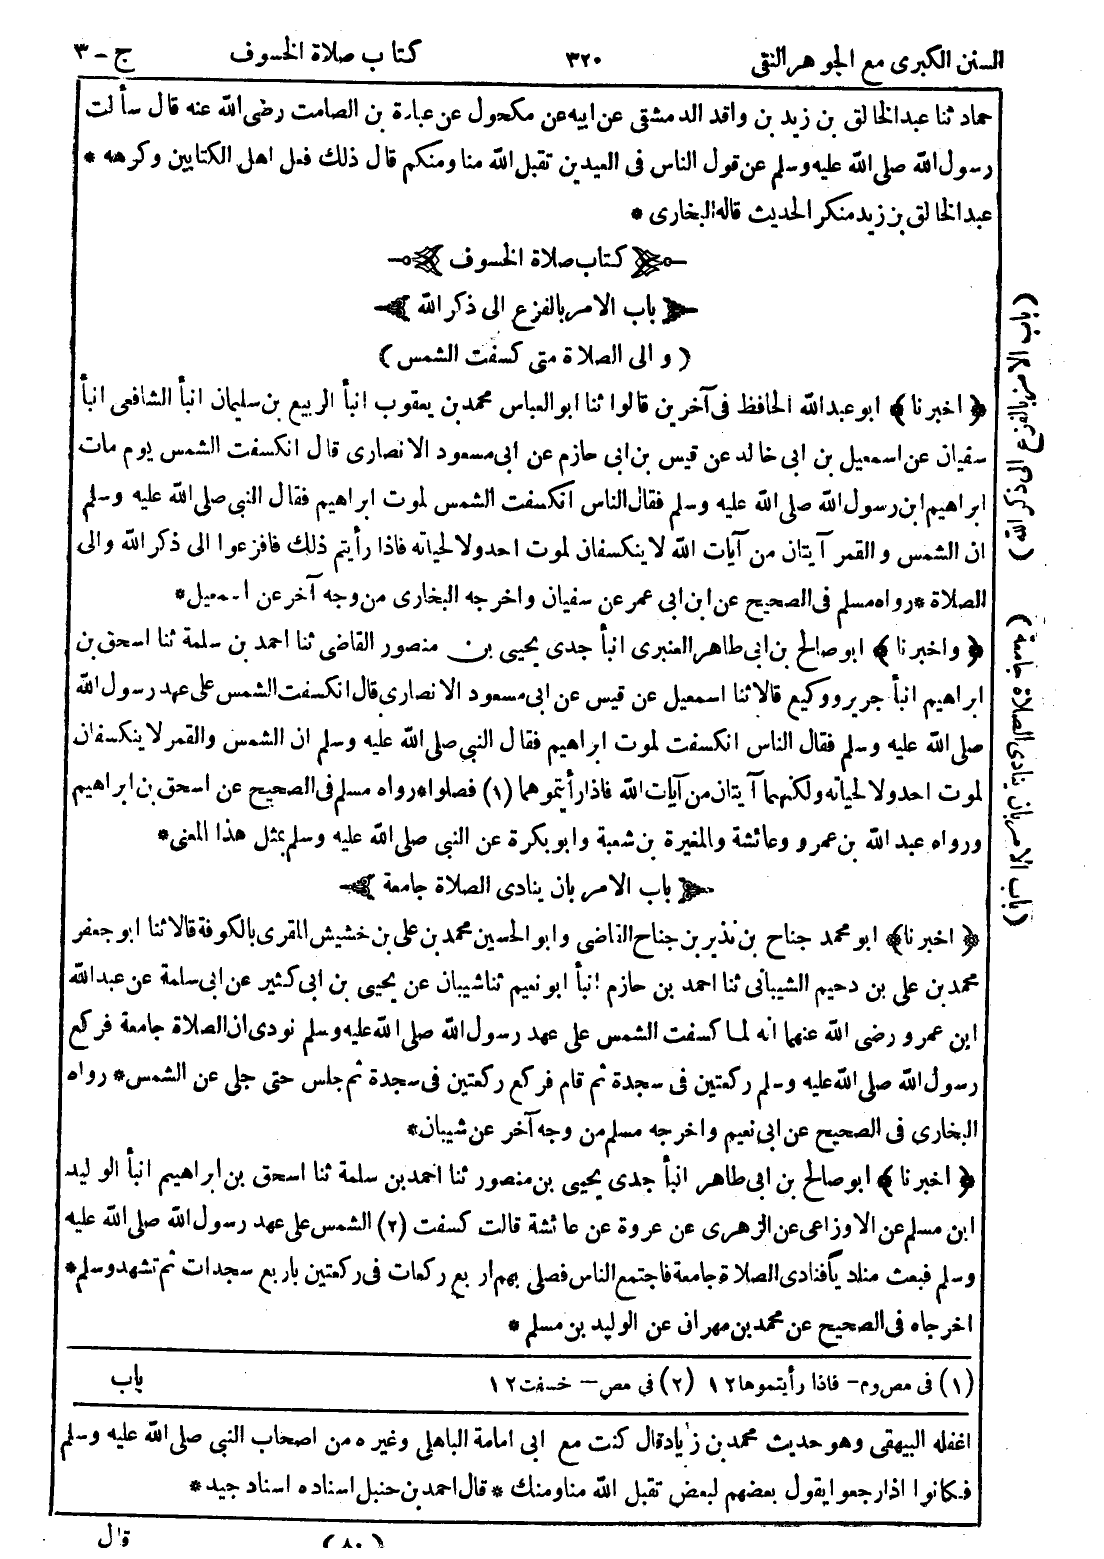 السنن الكبرى مع الجوهر النقى ٣٢٠ كتاب صلاة الخسوف ج - ٣
حماد ثنا عبد الخالق بن زيد بن واقد الدمشقى عن ابيه عن مكحول عن عبادة بن الصامت رضى الله عنه قال سألت
رسول الله صلى الله عليه وسلم عن قول الناس فى العيدين تقبل الله منا ومنكم قال ذلك فعل اهل الكتابين وكرهه *
عبد الخالق بن زيد منكر الحديث قاله البخارى *
كتاب صلاة الخسوف
باب الامر بالفزع الى ذكر الله
( و الى الصلاة متى كسفت الشمس )
﴿ اخبرنا ﴾ ابو عبد الله الحافظ فى آخرين قالوا ثنا ابو العباس محمد بن يعقوب انبأ الربيع بن سليمان انبأ الشافعى انبأ
سفيان عن اسمعيل بن ابى خالد عن قيس بن ابى حازم عن ابى مسعود الانصارى قال انكسفت الشمس يوم مات
ابراهيم ابن رسول الله صلى الله عليه وسلم فقال الناس انكسفت الشمس لموت ابراهيم فقال النبى صلى الله عليه وسلم
ان الشمس والقمر آيتان من آيات الله لا ينكسفان لموت احد ولا لحياته فاذا رأيتم ذلك فافزعوا الى ذكر الله والى
الصلاة * رواه مسلم فى الصحيح عن ابن ابى عمر عن سفيان واخرجه البخارى من وجه آخر عن اسمعيل *
﴿ واخبرنا ﴾ ابو صالح بن ابى طاهر العنبرى انبأ جدى يحيى بن منصور القاضى ثنا احمد بن سلمة ثنا اسحق بن
ابراهيم انبأ جرير ووكيع قالا ثنا اسمعيل عن قيس عن ابى مسعود الانصارى قال انكسفت الشمس على عهد رسول الله
صلى الله عليه وسلم فقال الناس انكسفت لموت ابراهيم فقال النبى صلى الله عليه وسلم ان الشمس والقمر لا ينكسفان
لموت احد ولا لحياته ولكنهما آيتان من آيات الله فاذا رأيتموهما (١) فصلوا * رواه مسلم فى الصحيح عن اسحق بن ابراهيم
ورواه عبد الله بن عمرو وعائشة والمغيرة بن شعبة وابو بكرة عن النبى صلى الله عليه وسلم بمثل هذا المعنى *
باب الامر بان ينادى الصلاة جامعة
﴿ اخبرنا ﴾ ابو محمد جناح بن نذير بن جناح القاضى وابو الحسين محمد بن على بن خشيش المقرى بالكوفة قالا ثنا ابو جعفر
محمد بن على بن دحيم الشيبانى ثنا احمد بن حازم انبأ ابو نعيم ثنا شيبان عن يحيى بن ابى كثير عن ابى سلمة عن عبد الله
ابن عمرو رضى الله عنهما انه لما كسفت الشمس على عهد رسول الله صلى الله عليه وسلم نودى ان الصلاة جامعة فركع
رسول الله صلى الله عليه وسلم ركعتين فى سجدة ثم قام فركع ركعتين فى سجدة ثم جلس حتى جلى عن الشمس * رواه
البخارى فى الصحيح عن ابى نعيم واخرجه مسلم من وجه آخر عن شيبان *
﴿ اخبرنا ﴾ ابو صالح بن ابى طاهر انبأ جدى يحيى بن منصور ثنا احمد بن سلمة ثنا اسحق بن ابراهيم انبأ الوليد
ابن مسلم عن الاوزاعى عن الزهرى عن عروة عن عائشة قالت كسفت (٢) الشمس على عهد رسول الله صلى الله عليه
وسلم فبعث مناديا فنادى الصلاة جامعة فاجتمع الناس فصلى بهم اربع ركعات فى ركعتين باربع سجدات ثم تشهد وسلم *
اخرجاه فى الصحيح عن محمد بن مهران عن الوليد بن مسلم *
(١) فى مص وم - فاذا رأيتموها ١٢ (٢) فى مص - خسفت ١٢ باب
اغفله البيهقى وهو حديث محمد بن زياد قال كنت مع ابى امامة الباهلى وغيره من اصحاب النبى صلى الله عليه وسلم
فكانوا اذا رجعوا يقول بعضهم لبعض تقبل الله منا ومنك * قال احمد بن حنبل اسناده اسناد جيد *
(٤٠) قال
(باب الامر بالفزع الى ذكر الله)
(باب الامر بان ينادى الصلاة جامعة)